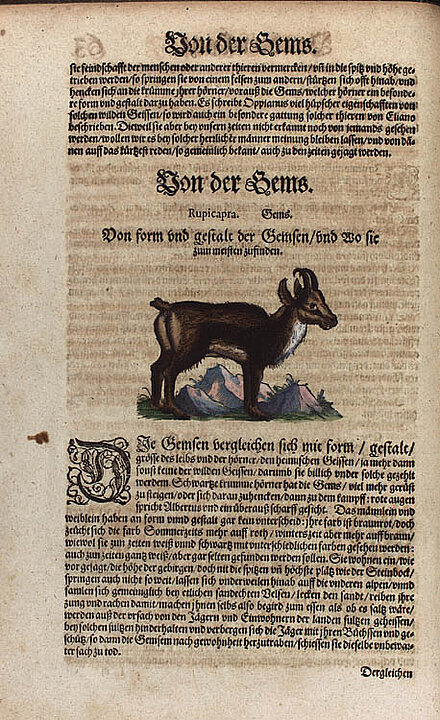 Von der Gems.
sie feindschafft der menschen oder anderer thieren vermercken/ vñ in die spitz vnd höhe ge-
trieben werden/ so springen sie von einem felsen zum andern/ stürtzen sich offt hinab/ vnd
hencken sich an die krümme jhrer hörner/ vorauß die Gems/ welcher hörner ein besonde-
re form vnd gestalt darzu haben. Es schreibt Oppianus viel hüpscher eigenschafften von
solchen wilden Geissen/ so wird auch ein besondere gattung solcher thieren von Eliano
beschrieben. Dieweil sie aber bey vnsern zeiten nicht erkannt noch von jemands gesehen
werden/ wollen wir es bey solcher herrlichē männer meinung bleiben lassen/ vnd von dä-
nen auff das kürtzest reden/ so gemeinlich bekant/ auch zu den zeiten gejagt werden.
Von der Gems.
Rupicapra. Gems.
Von form vnd gestalt der Gemsen/ vnd Wo sie
zum meisten zufinden.
DIe Gemsen vergleichen sich mit form/ gestalt/
grösse des leibs vnd der hörner/ den heimischen Geissen/ ja mehr dann
sonst keine der wilden Geissen/ darumb sie billich vnder solche gezehlt
werden. Schwartze krumme hörner hat die Gems/ viel mehr gerüst
zu steigen/ oder sich daran zuhencken/ dann zu dem kampff: rote augen
spricht Albertus vnd ein überauß scharff gesicht. Das männlein vnd
weiblein haben an form vnnd gestalt gar kein vnterscheid: jhre farb ist braunrot/ doch
zeücht sich die farb Sommerzeits mehr auff roth/ winterszeit aber mehr auff braun/
wiewol sie zun zeiten weiß vnnd schwartz mit vnterschiedlichen farben gesehen werden:
auch zun zeiten gantz weiß/ aber gar selten gefunden werden sollen. Sie wohnen ein/ wie
vor gesagt/ die höhe der gebirgen/ doch nit die spitzen vñ höchste plätz wie der Steinbock/
springen auch nicht so weit/ lassen sich underweilen hinab auff die anderen alpen/ vnnd
samlen sich gemeinlich bey etlichen sandechten Velsen/ lecken den sandt/ reiben jhre
zung vnd rachen damit/ machen jhnen selbs also begird zum essen als ob es saltz wäre/
werden auß der vrsach von den Jägern vnd Einwohnern der landen sultzen geheissen/
bey solchen sultzen hinderhalten vnd verbergen sich die Jäger mit jhren Büchssen vnd ge-
schütz/ so dann die Gemsem nach gewohnheit herzutraben/ schiessen sie dieselbe vnbewar-
ter sach zu tod.
Dergleichen